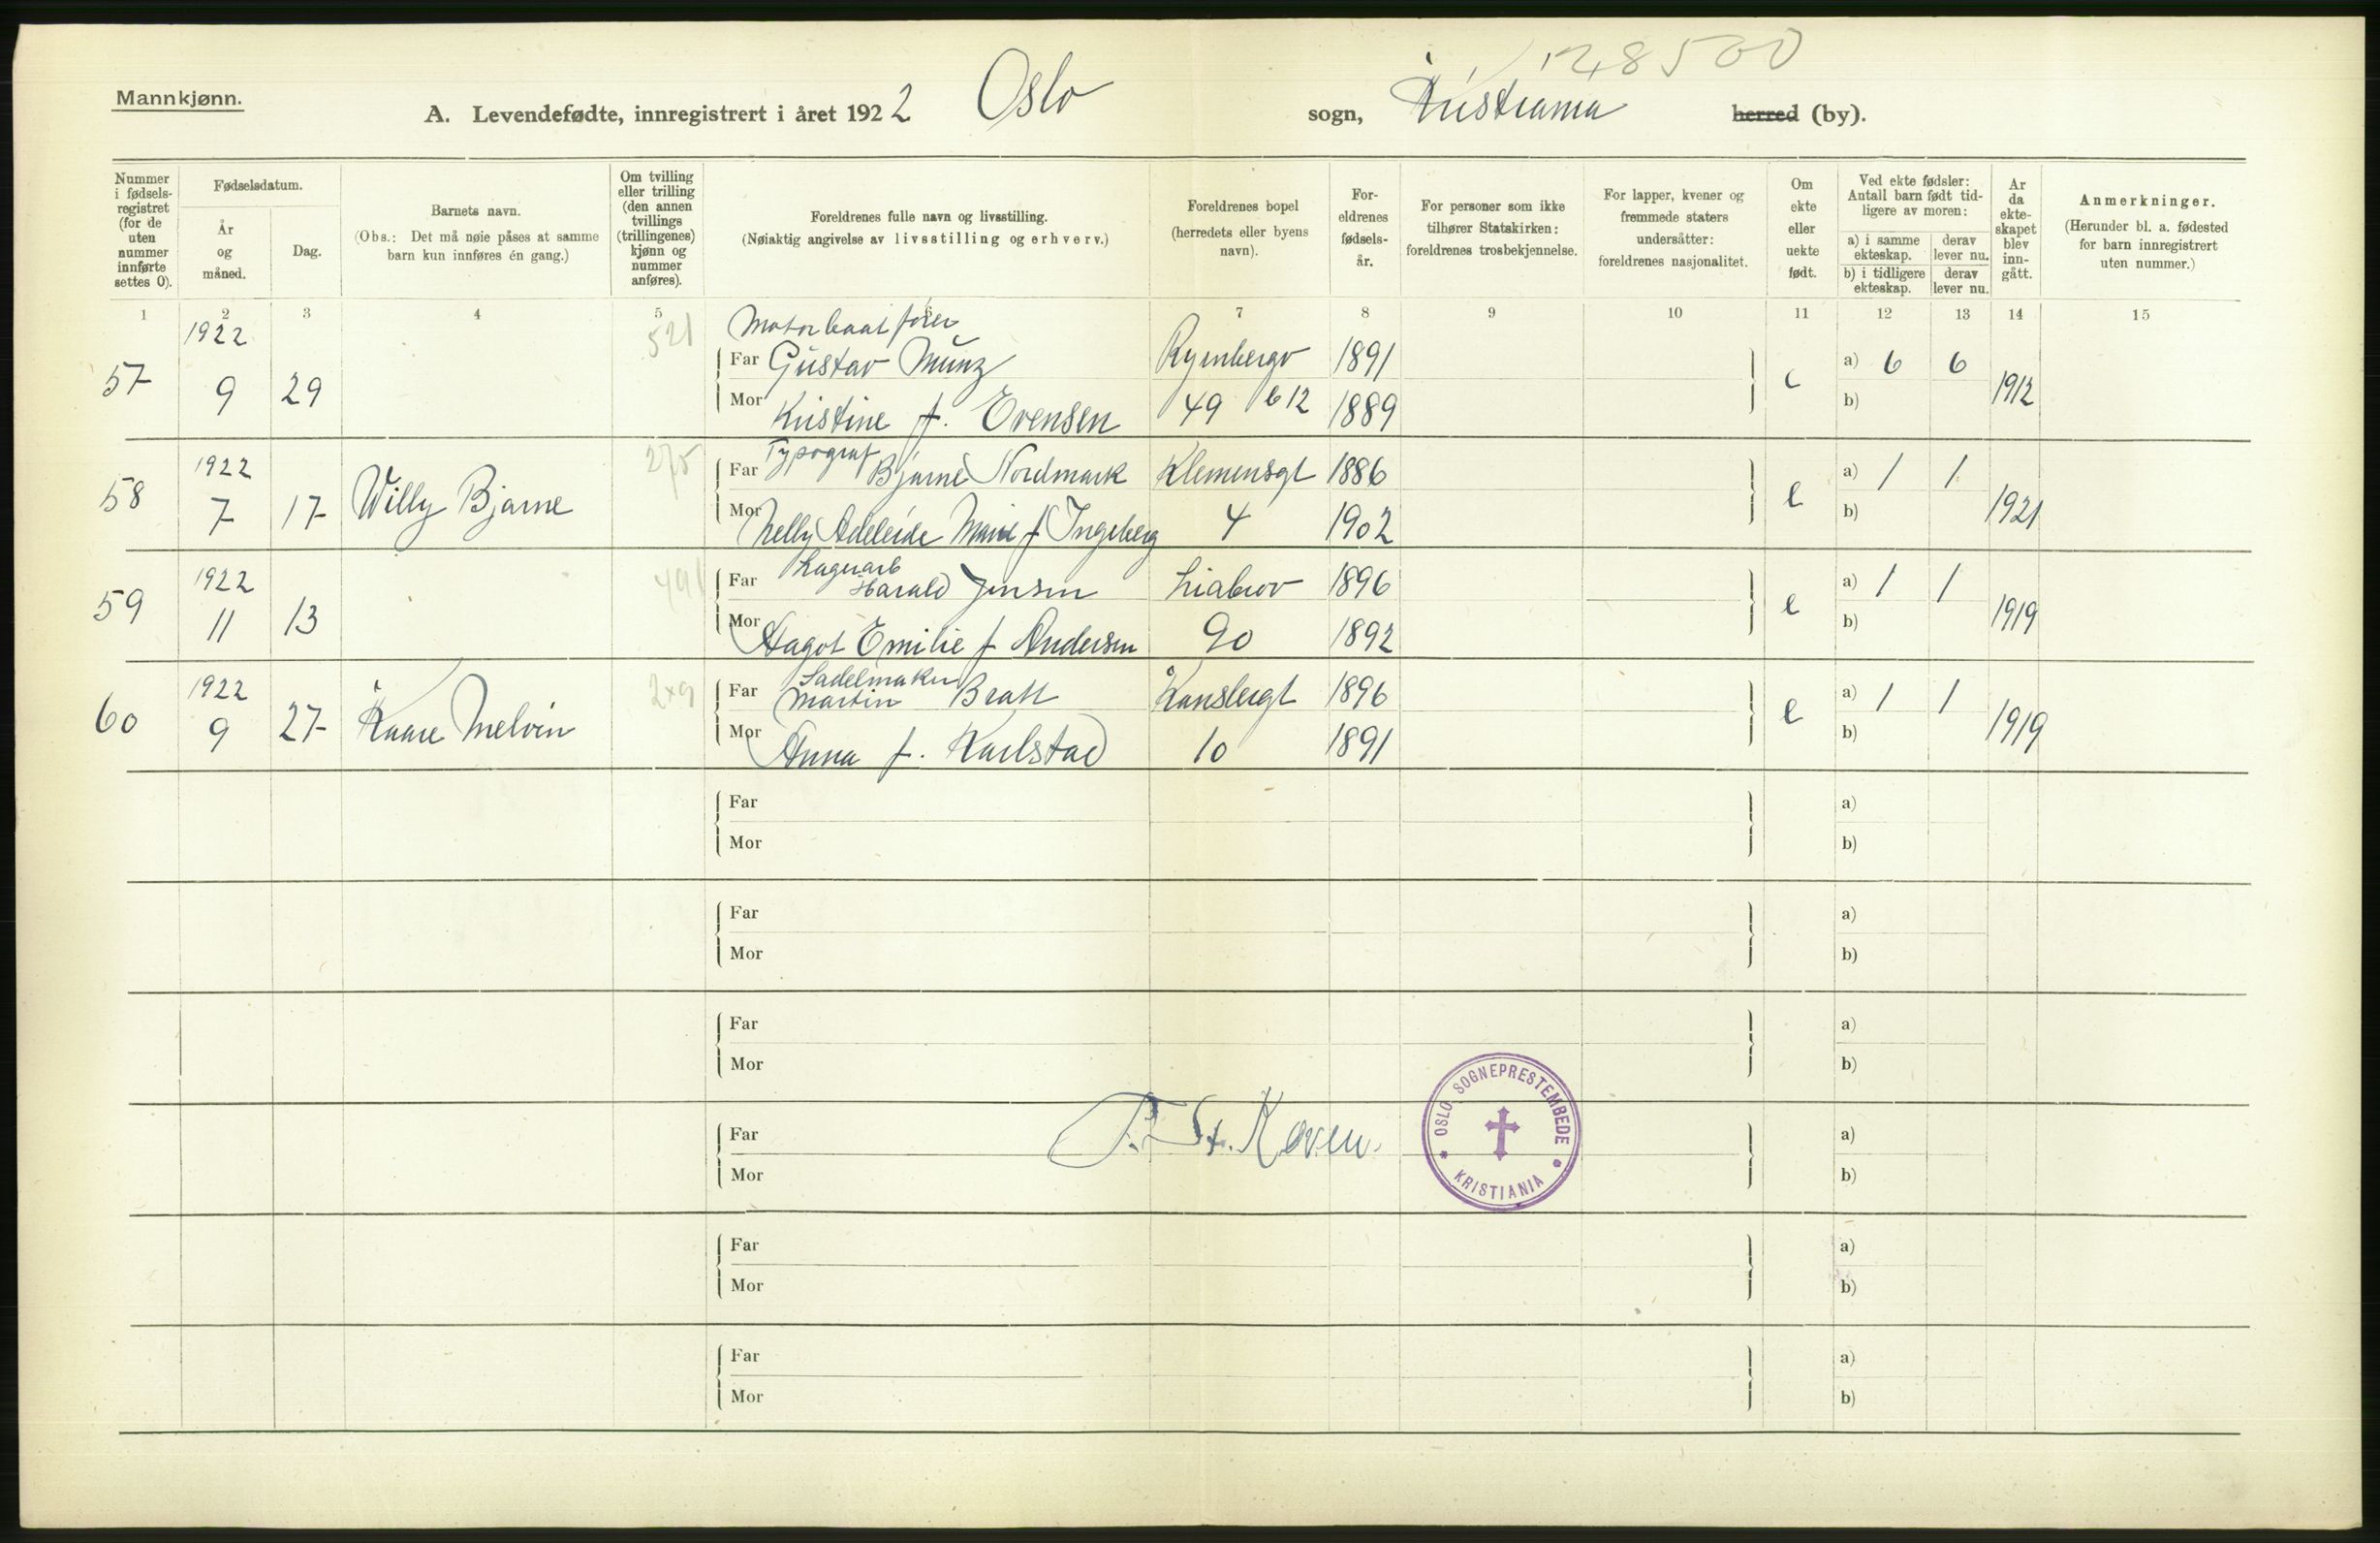 128500
Mannkjønn.
A. Levendefødte, innregistrert i året 1922 Oslo sogn, Kristiania herred (by).
Nummer i fødsels-registret (for de uten nummer innførte settes 0).
Fødselsdatum.
År og måned.
Dag.
Barnets navn.
(Obs.: Det må nøie påses at samme barn kun innføres én gang.)
Om tvilling eller trilling (den annen tvillings (trillingenes) kjønn og nummer anføres).
Foreldrenes fulle navn og livsstilling.
(Nøiaktig angivelse av livsstilling og erhverv.)
Foreldrenes bopel (herredets eller byens navn).
For-eldrenes fødsels-år.
For personer som ikke tilhører Statskirken: foreldrenes trosbekjennelse.
For lapper, kvener og fremmede staters undersåtter: foreldrenes nasjonalitet.
Om ekte eller uekte født.
Ved ekte fødsler: Antall barn født tid-ligere av moren:
a) i samme ekteskap. derav lever nu.
b) i tidligere ekteskap. derav lever nu.
År da ekte-skapet blev inn-gått.
Anmerkninger.
(Herunder bl. a. fødested for barn innregistrert uten nummer.)
1 2 3 4 5 6 7 8 9 10 11 12 13 14 15
1922 521 Motorbaatfører
57 9 29 Far Gustav Münz Ryenbergv 1891 e a) 6 6 1912
Mor Kristine f. Evensen 49 b 12 1889 b)
1922 275 Typograf
58 7 17 Willy Bjarne Far Bjarne Nordmark Klemensgt 1886 e a) 1 1 1921
Mor Nelly Adeleide Marie f Ingeberg 4 1902 b)
1922 491 Lagerarb
59 11 13 Far Harald Jensen Liabrov 1896 e a) 1 1 1919
Mor Aagot Emilie f Andersen 90 1892 b)
1922 Sadelmaker
60 9 27 Kaare Melvin Far Martin Bratt Kanslergt 1896 e a) 1 1 1919
Mor Anna f. Karlstad 10 1891 b)
Far a)
Mor b)
Far a)
Mor b)
Far a)
Mor b)
OSLO SOGNEPRESTEMBEDE
KRISTIANIA
Far a)
Mor b)
Far a)
Mor b)
Far a)
Mor b)